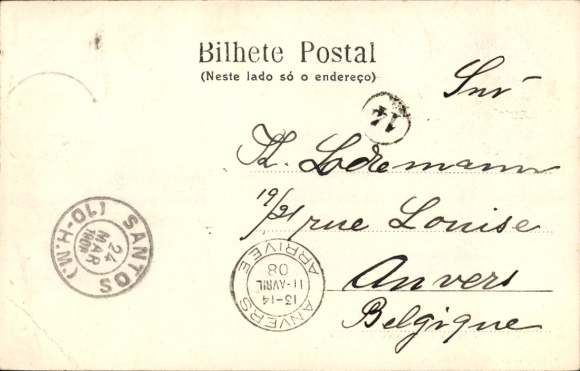 Bilhete Postal
(Neste lado só o endereço)
Snr
Th. Lodemann
19/21 rue Louise
Anvers
Belgique
14
SANTOS (10-H.M.)
24
MAR
1908
ANVERS
13-14
11-AVRIL
08
ARRIVÉE